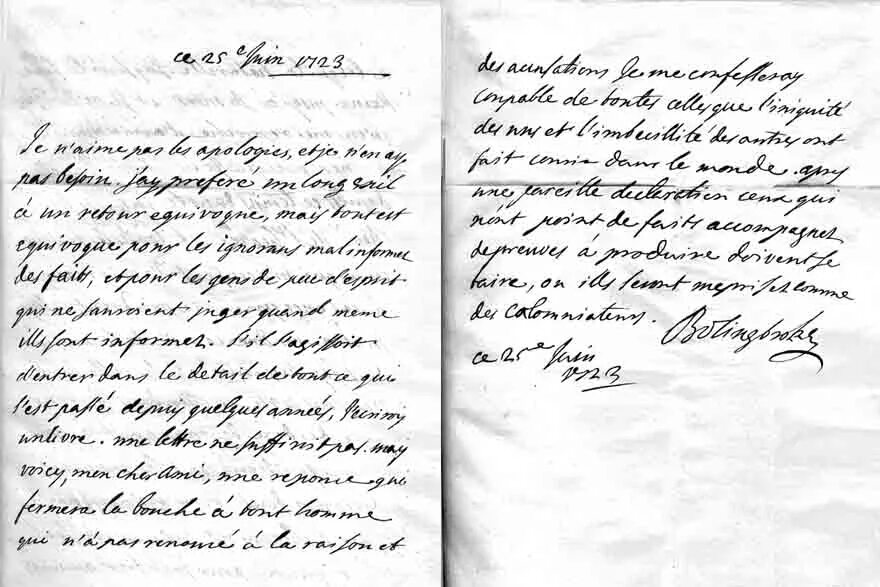 ce 25e Juin 1723
Je n'aime pas les apologies, et je n'en ay
pas besoin. j'ay preferé un long exil
à un retour equivoque, mais tout est
equivoque pour les ignorans mal informez
des faits, et pour les gens de peu d'esprit
qui ne sauroient juger quand meme
ills sont informez. s'il s'agissoit
d'entrer dans le detail de tout ce qui
s'est passé depuis quelques années, j'ecrirois
un livre. une lettre ne suffiroit pas. may
voicy, mon cher ami, une reponse qui
fermera la bouche à tout homme
qui n'a pas renoncé à la raison et
des acusations Je me confesseray
coupable de toutes celles que l'iniquité
des uns et l'imbecillité des autres ont
fait courir dans le monde. apres
une pareille declaration ceux qui
n'ont point de faits accompagnez
de preuves à produire doivent se
taire, ou ills seront meprisez comme
des calomniateurs.
Bolingbroke
ce 25e Juin
1723